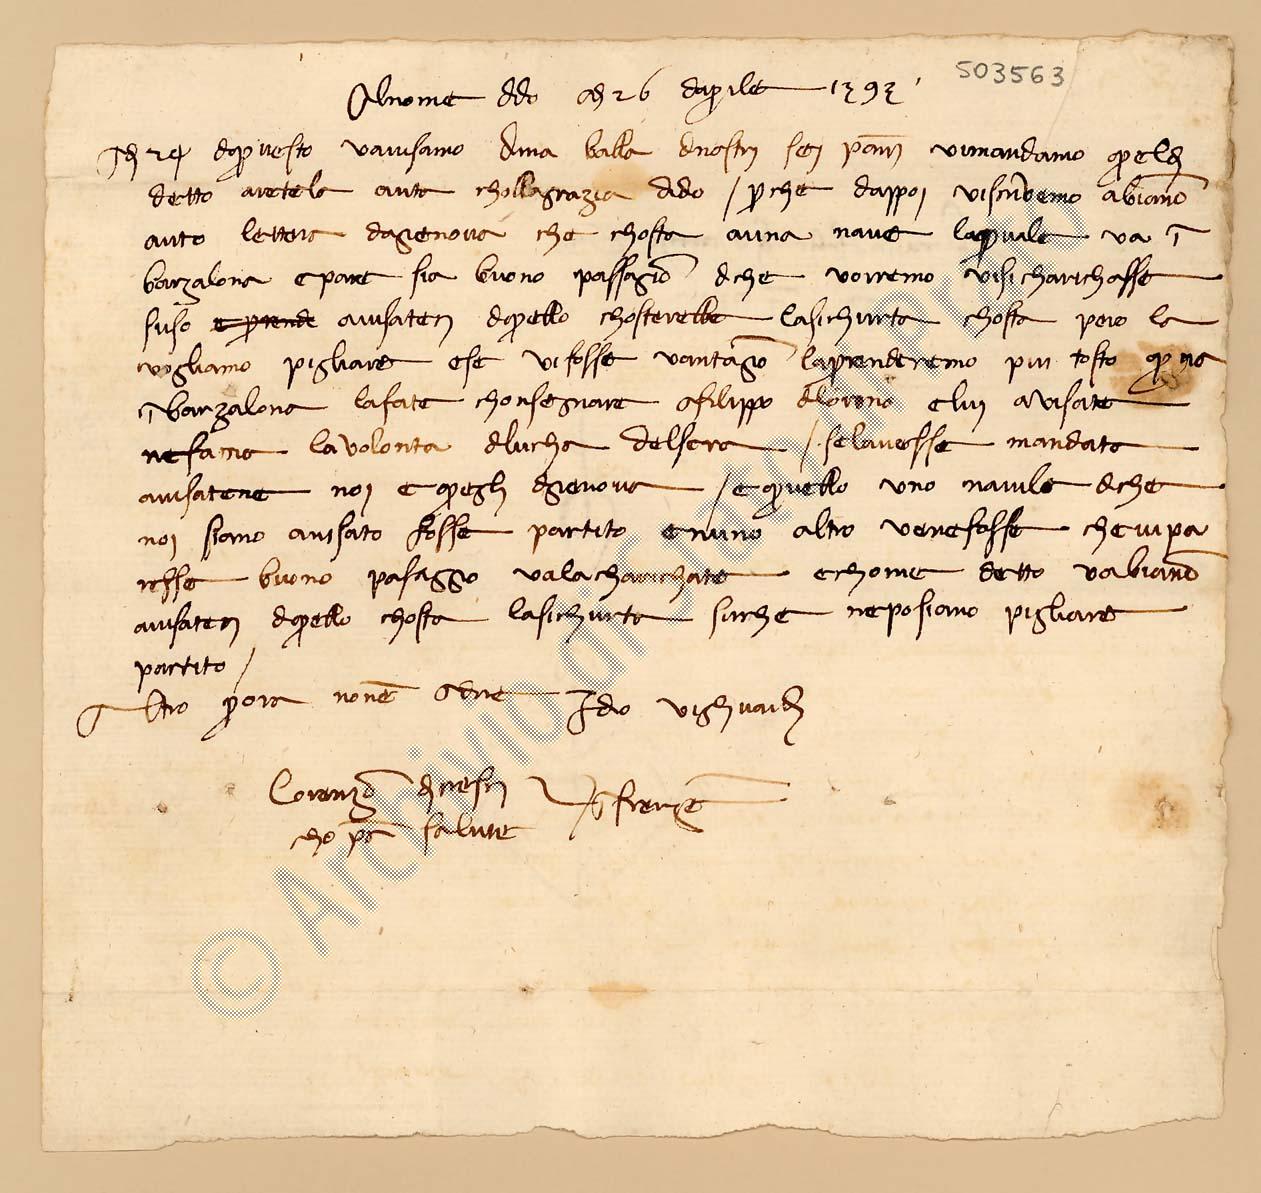 503563
Al nome ddo adi 26 daprile 1393
Adi 24 dquesto vavisamo duna balla dnostri sei panni vimandamo quel di
detto avetela auta cholla grazia ddo / perche dappoi viscrivemo abiamo
auto lettera da gienova che chosta a una nave la quale va i
barzalona e pare sia buono passagio dche vorremo visi charichasse
suso e prende avisateci dquello chosterebbe la sichurta chosta pero la
vogliamo pigliare e se vi fosse vantagio la prenderemo piu tosto qui
i barzalona la fate chonsegnare a filippo dloreno e lui avisate
ne facia la volonta dlucha del sera / se lavesse mandata
avisatene noi e quegli dgienova / e quello uno navile dche
noi siamo avisato fosse partito e niuno altro ve ne fosse che vi pa
resse buono pasaggio vala charichate e chome detto vabiamo
avisateci dquello chosta la sichurta si che ne posiamo pigliare
partito /
Altro per ora non e a dire Ido vi ghuardi
Lorenzo dcresci
cho pa salute
i firenze
© Archivio di Stato di Prato